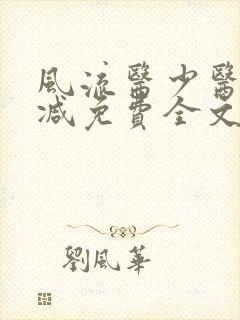 風流醫少醫
减免費全文
劉風華